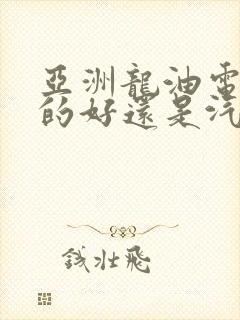 亞洲龍油電
的好還是汽
錢壯飛